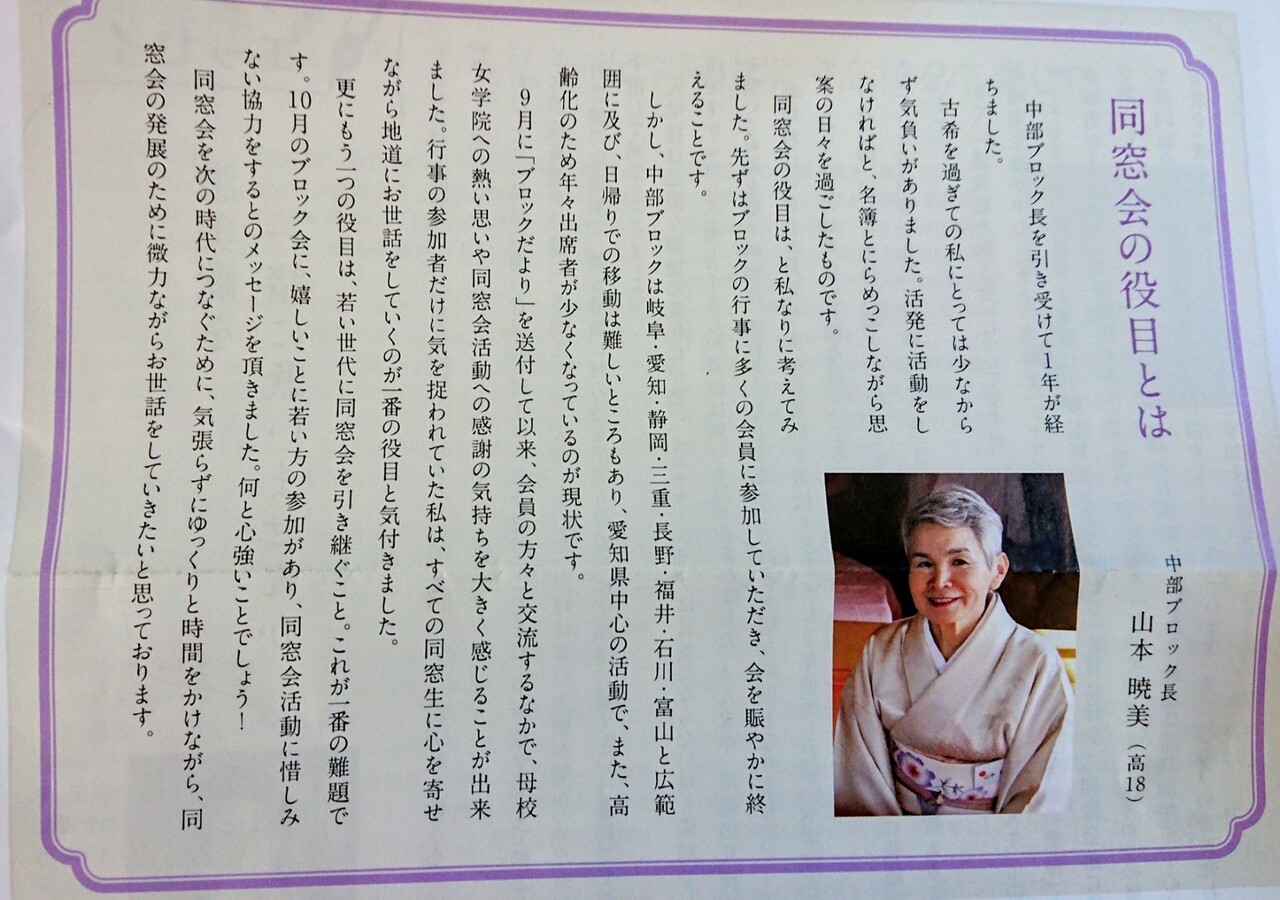 同窓会の役目とは
中部ブロック長
山本 暁美（高18）
中部ブロック長を引き受けて1年が経
ちました。
古希を過ぎての私にとっては少なから
ず気負いがありました。活発に活動をし
なければと、名簿とにらめっこしながら思
案の日々を過ごしたものです。
同窓会の役目は、と私なりに考えてみ
ました。先ずはブロックの行事に多くの会員に参加していただき、会を賑やかに終
えることです。
しかし、中部ブロックは岐阜・愛知・静岡・三重・長野・福井・石川・富山と広範
囲に及び、日帰りでの移動は難しいところもあり、愛知県中心の活動で、また、高
齢化のため年々出席者が少なくなっているのが現状です。
9月に「ブロックだより」を送付して以来、会員の方々と交流するなかで、母校
女学院への熱い思いや同窓会活動への感謝の気持ちを大きく感じることが出来
ました。行事の参加者だけに気を捉われていた私は、すべての同窓生に心を寄せ
ながら地道にお世話をしていくのが一番の役目と気付きました。
更にもう一つの役目は、若い世代に同窓会を引き継ぐこと。これが一番の難題で
す。10月のブロック会に、嬉しいことに若い方の参加があり、同窓会活動に惜しみ
ない協力をするとのメッセージを頂きました。何と心強いことでしょう！
同窓会を次の時代につなぐために、気張らずにゆっくりと時間をかけながら、同
窓会の発展のために微力ながらお世話をしていきたいと思っております。